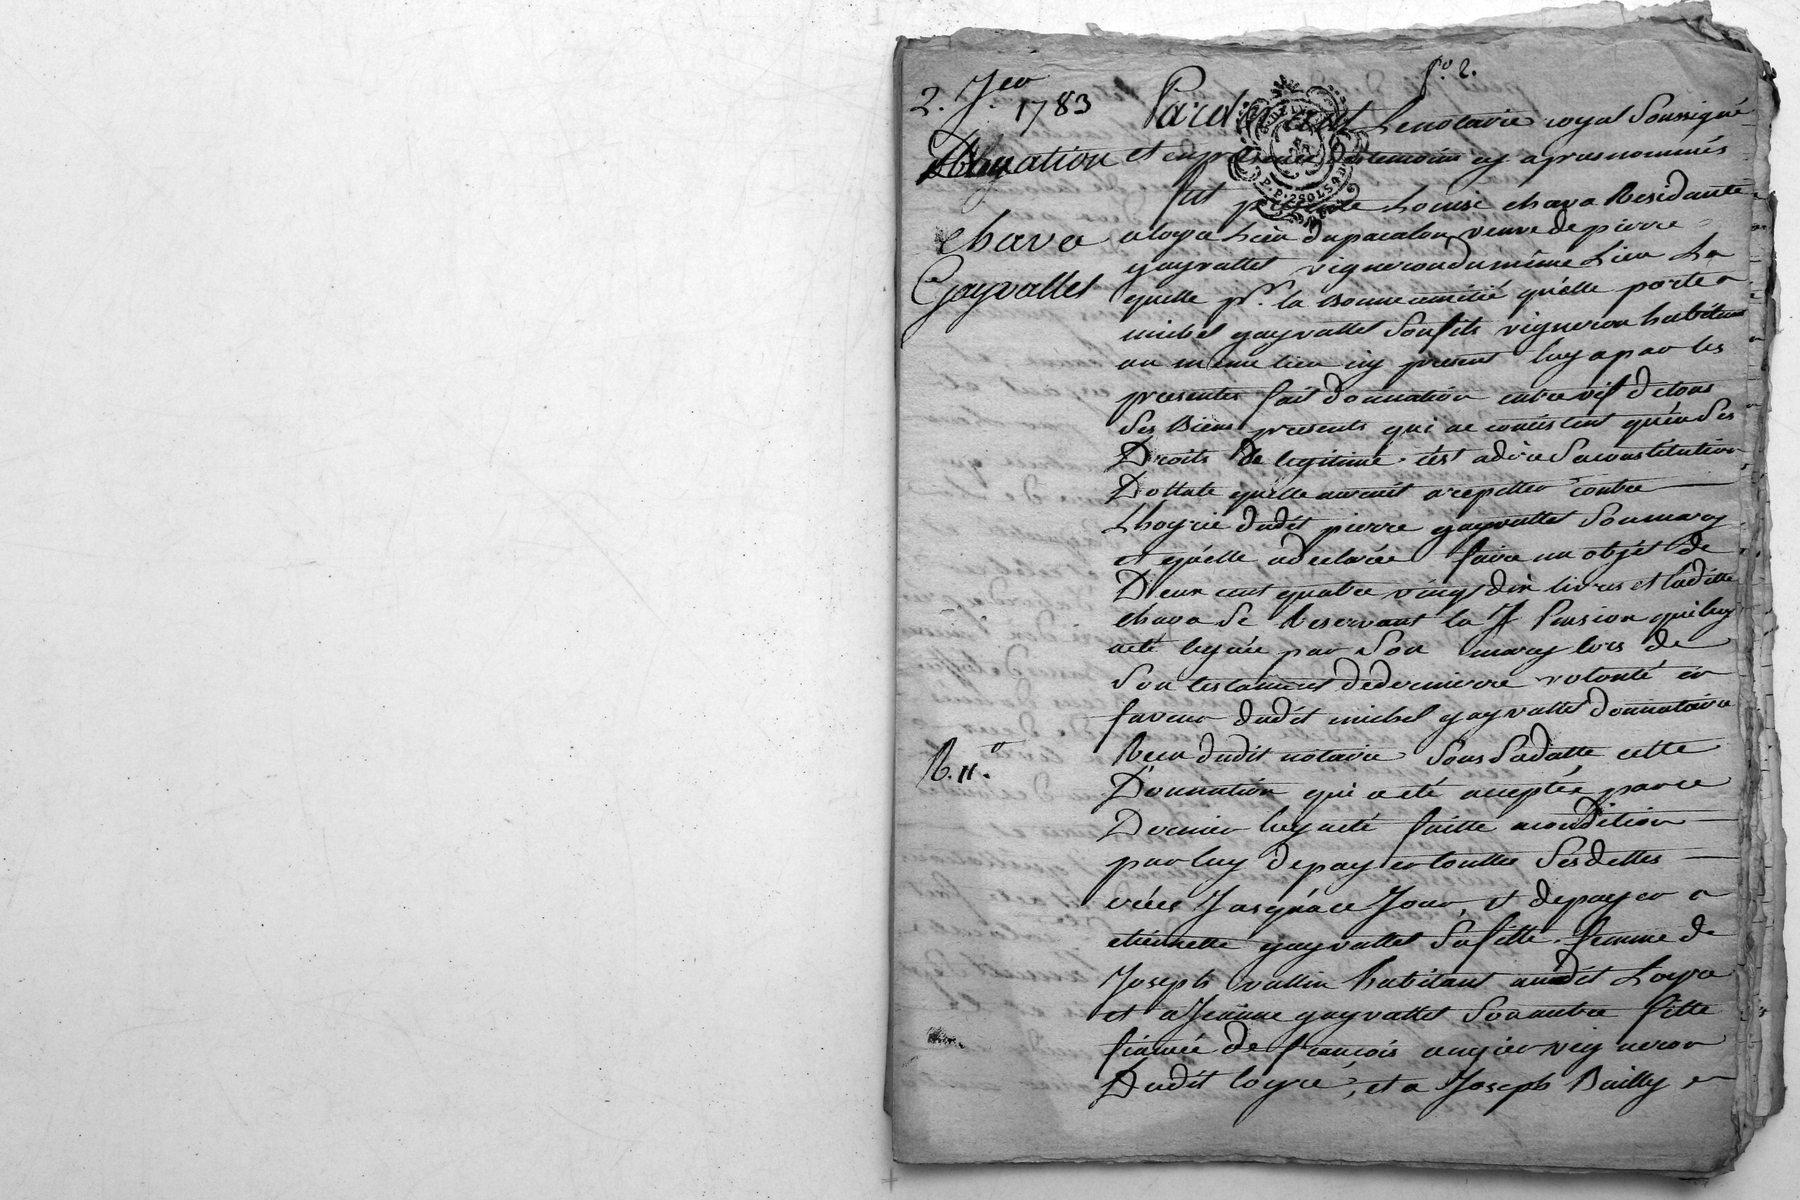 fo. 2.
2. Jer
1783
Pardevant Le notaire royal Soussigné
Donnation
et en presence des temoins cy apres nommés
fut presente Louise chava Residante
chava
a loyre Lieu du pacalon veuve de pierre
Gayvallet
gayvallet vigneron du même Lieu La
quelle pr. la Bonne amitié qu'elle porte a
michel gayvallet Son fils vigneron habitant
au même lieu icy present luy a par les
presentes fait donnation entre vif de tous
Ses Biens presents qui ne consistent qu'en Ses
Droits de legitime c'est a dire Sa constitution
Dottale qu'elle auroit a repetter contre
Lhoyrie dudit pierre gayvallet Son mary
et qu'elle a declarée faire un objet de
Deux cent quatre vingt dix livres et laditte
chava Se Reservant la Pension qui luy
a eté leguée par Son mary lors de
Son testament de derniere volonté en
faveur dudit michel gayvallet donnataire
R. 11.
Recu dudit notaire Sous Sa datte cette
Donnation qui a eté acceptée par ce
Dernier luy a eté faitte a condition
par luy de payer touttes Ses dettes
crées Jusqu'a ce Jour, et de payer a
etiennette gayvallet Sa fille femme de
Joseph vallin habitant audit Loyre
et a Jeanne gayvallet Son autre fille
fiancée de françois ogier vigneron
Dudit loyre, et a Joseph Bailly